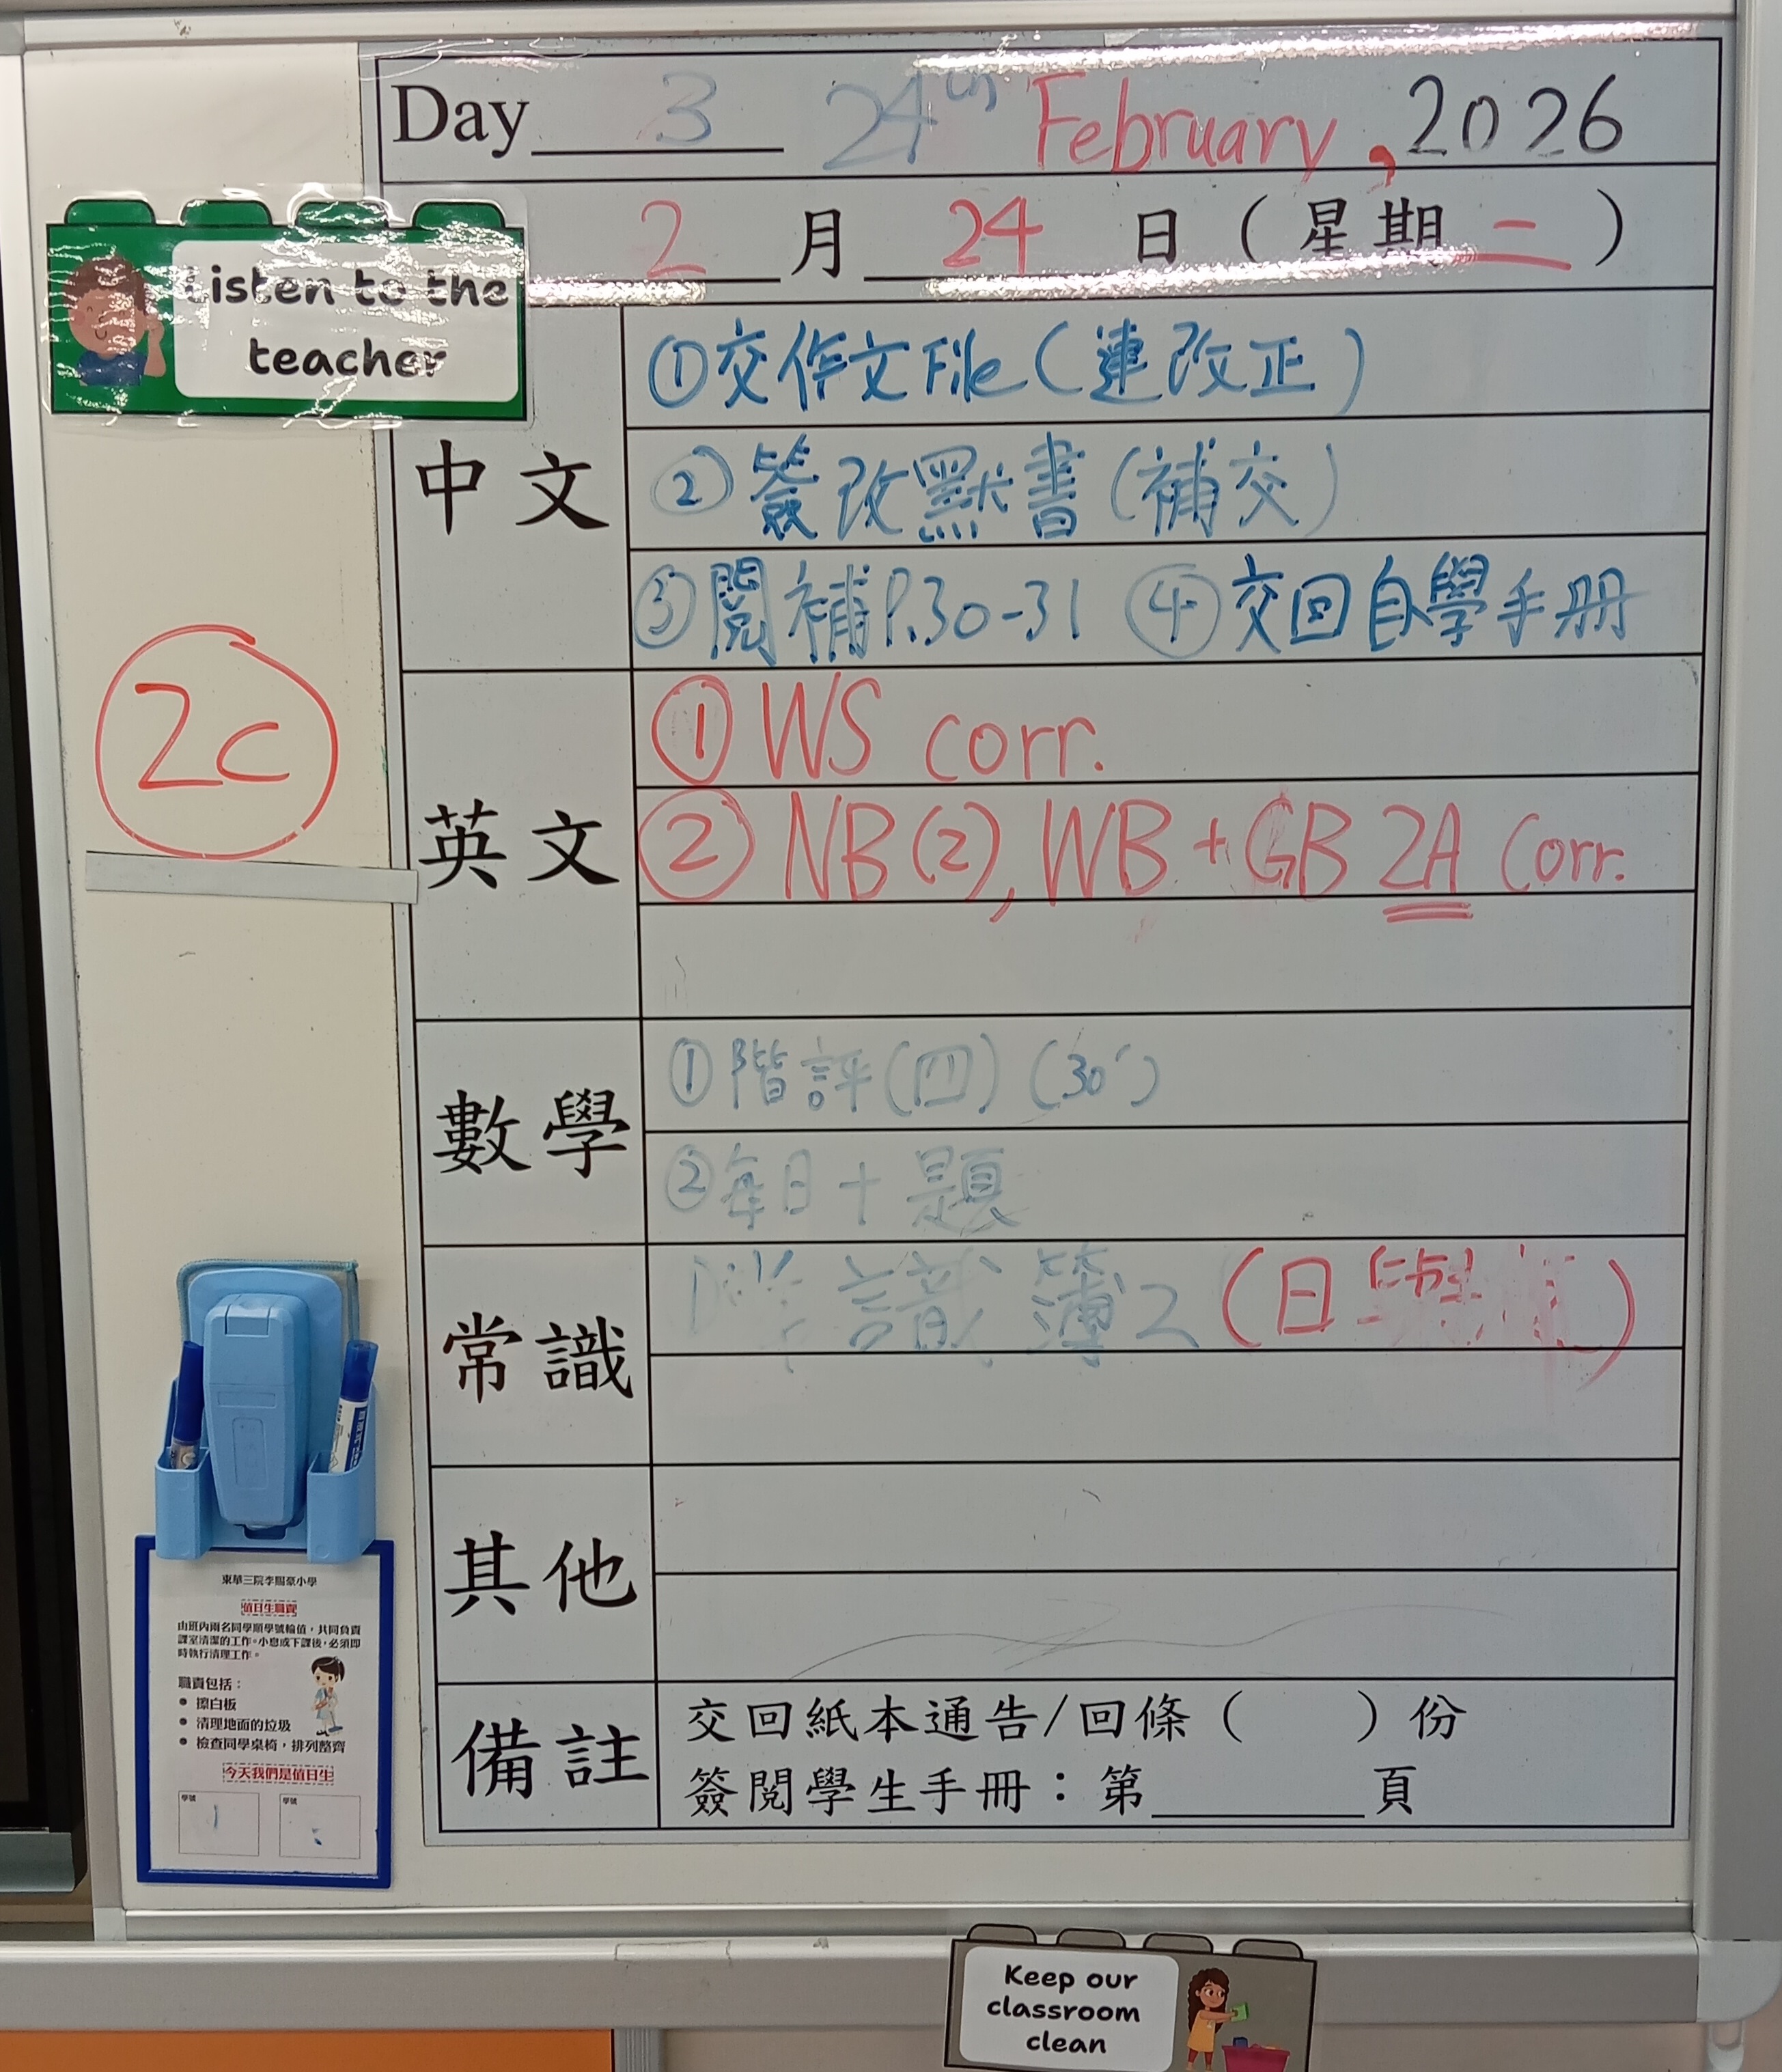 Day 3 24th February, 2026
2月24日（星期二）
Listen to the
teacher
中文
①交作文File（連改正）
②簽改默書（補交）
③閱補P.30-31 ④交回自學手册
2C
英文
① WS corr.
② NB(2), WB + GB 2A Corr.
數學
①階評(四) (30')
②每日十題
常識
識簿2（日
其他
備註
交回紙本通告/回條（　　）份
簽閱學生手冊：第＿＿＿頁
東華三院李賜豪小學
值日生職責
由班內兩名同學順學號輪值，共同負責
課室清潔的工作。小息或下課後，必須即
時執行清理工作。
職責包括：
● 擦白板
● 清理地面的垃圾
● 檢查同學桌椅，排列整齊
今天我們是值日生
學號 學號
Keep our
classroom
clean